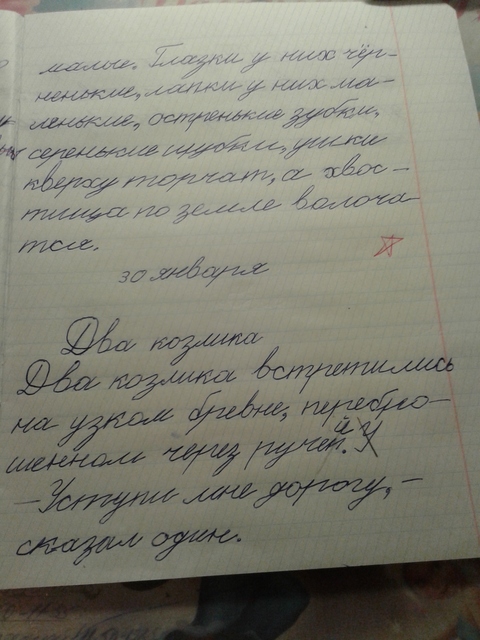 малые. Глазки у них чёр-
ненькие, лапки у них ма-
ленькие, остренькие зубки,
серенькие шубки, ушки
кверху торчат, а хвос-
тища по земле волоча-
тся.
30 января
Два козлика
Два козлика встретились
на узком бревне, перебро-
шенном через ручей.
-Уступи мне дорогу, -
сказал один.